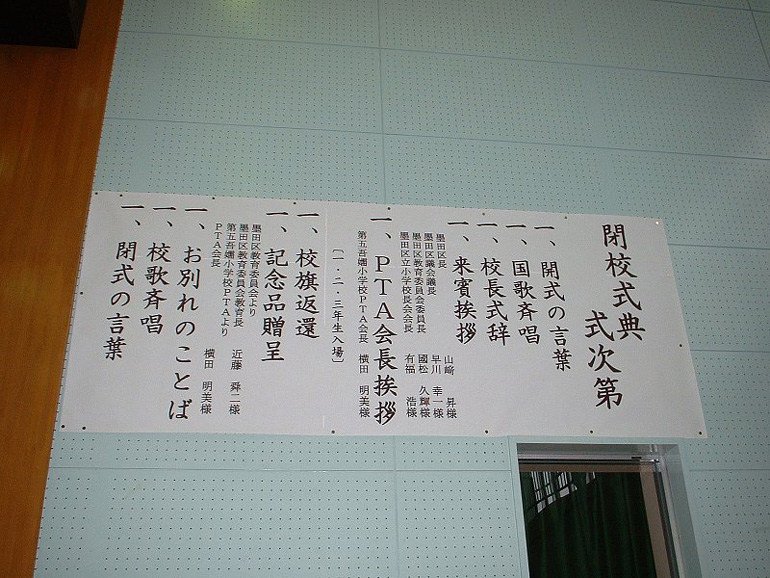 閉校式典
式次第
一、開式の言葉
一、国歌斉唱
一、校長式辞
一、来賓挨拶
墨田区長 山﨑 昇様
墨田区議会議長 早川 幸一様
墨田区教育委員会委員長 國松 久輝様
墨田区立小学校長会会長 有福 浩様
一、PTA会長挨拶
第五吾嬬小学校PTA会長 横田 明美様
〔一・二・三年生入場〕
一、校旗返還
一、記念品贈呈
墨田区教育委員会より
墨田区教育委員会教育長 近藤 舜二様
第五吾嬬小学校PTAより
PTA会長 横田 明美様
一、お別れのことば
一、校歌斉唱
一、閉式の言葉